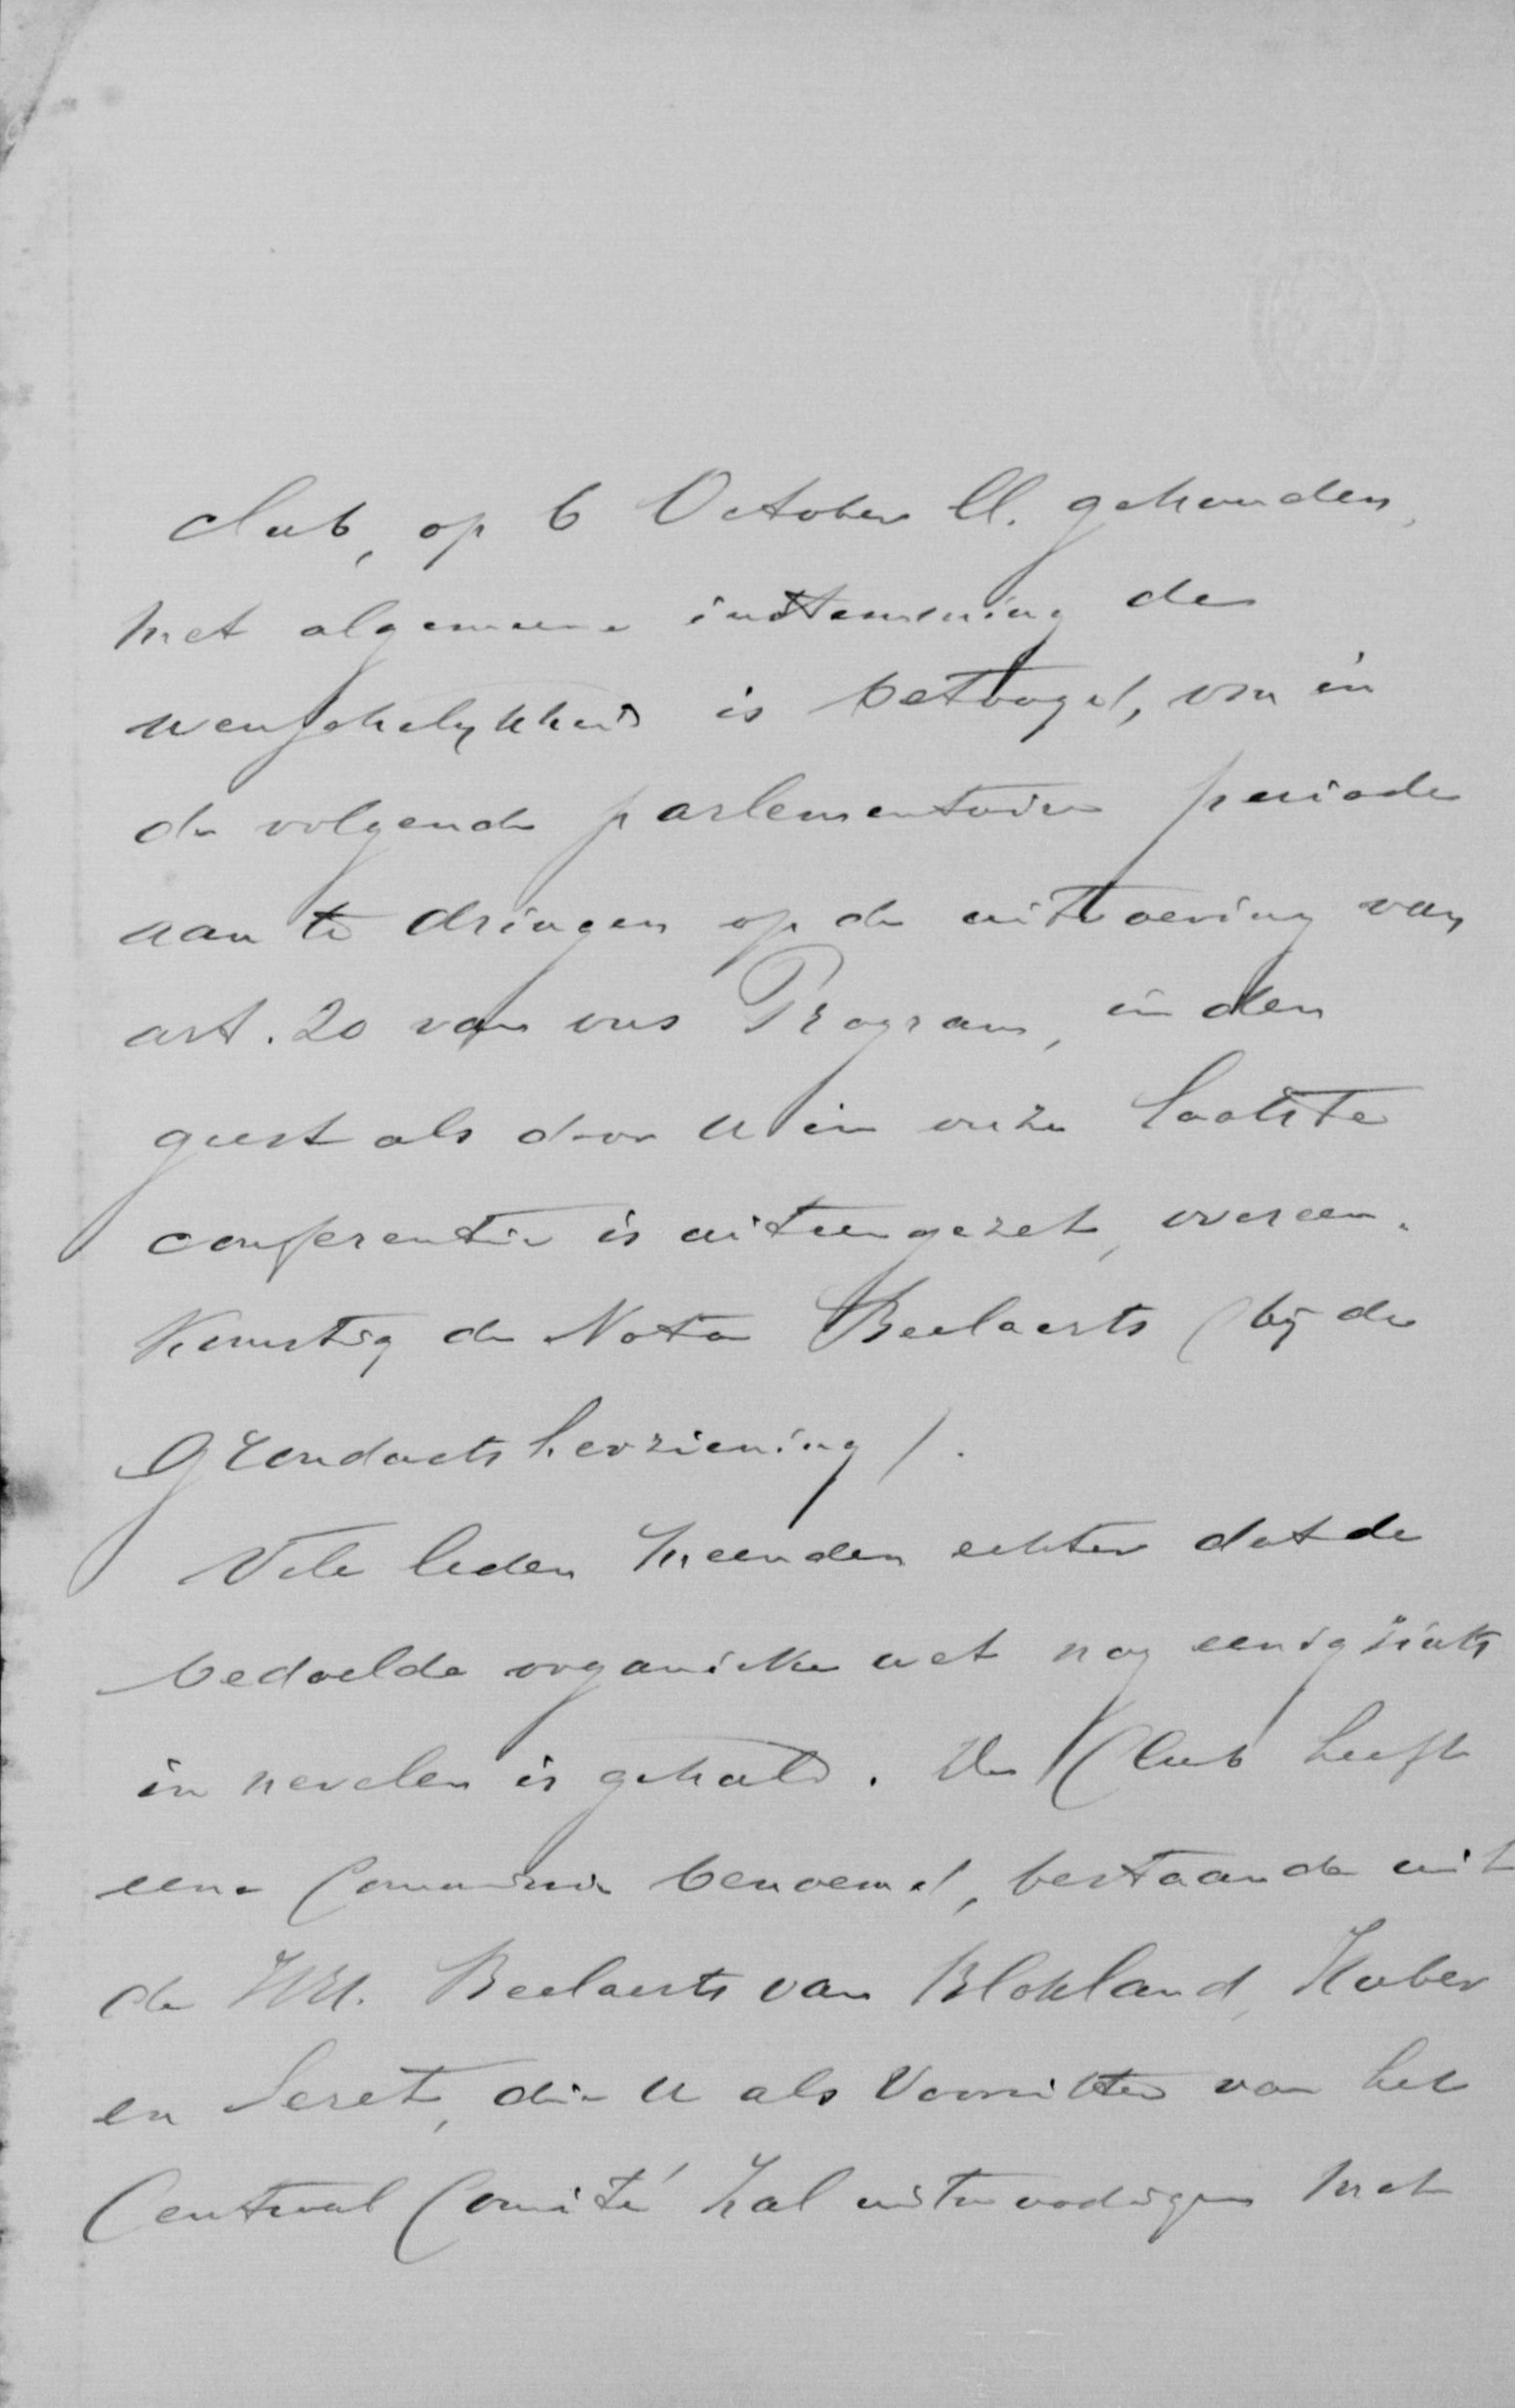 club, op 6 October ll. gehouden,
met algemeene instemming de
wenschelykheid is betoogd, om in
de volgende parlementaire periode
aan te dringen op de uitvoering van
art. 20 van ons Program, in den
geest als door U in onze laatste
conferentie is uiteengezet, overeen-
komstig de Nota Beelaerts (bij de
Grondwetsherziening).
Vele leden meenden echter dat de
bedoelde organieke wet nog eenigszints
in nevelen is gehuld. De Club heeft
eene Commissie benoemd, bestaande uit
de HH. Beelaerts van Blokland, Huber
en Seret, die U als Voorzitter van het
Centraal Comité zal uitnoodigen met